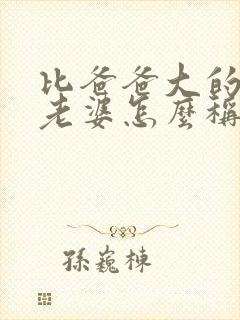 比爸爸大的
老婆怎麼稱
孫巍棟